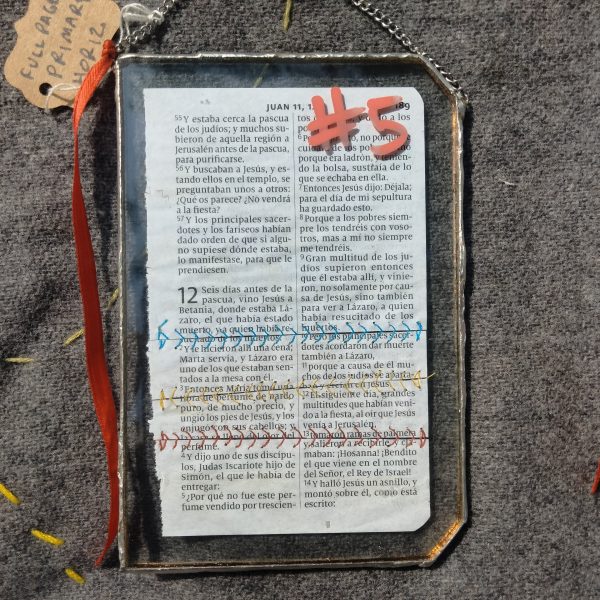 FULL PAGE
PRIMARY
HORIZ
#5
JUAN 11, 1
189
55 Y estaba cerca la pascua
de los judíos; y muchos su-
bieron de aquella región a
Jerusalén antes de la pascua,
para purificarse.
56 Y buscaban a Jesús, y es-
tando ellos en el templo, se
preguntaban unos a otros:
¿Qué os parece? ¿No vendrá
a la fiesta?
57 Y los principales sacer-
dotes y los fariseos habían
dado orden de que si algu-
no supiese dónde estaba,
lo manifestase, para que le
prendiesen.
12 Seis días antes de la
pascua, vino Jesús a
Betania, donde estaba Lá-
zaro, el que había estado
muerto, y a quien había re-
sucitado de los muertos.
2 Y le hicieron allí una cena;
Marta servía, y Lázaro era
uno de los que estaban sen-
tados a la mesa con él.
3 Entonces María tomó una
libra de perfume de nardo
puro, de mucho precio, y
ungió los pies de Jesús, y los
enjugó con sus cabellos; y
perfume.
4 Y dijo uno de sus discípu-
los, Judas Iscariote hijo de
Simón, el que le había de
entregar:
5 ¿Por qué no fue este per-
fume vendido por trescien-
tos a los
6 no porque
porque era ladrón, y
la bolsa, sustraía de lo
que se echaba en ella.
7 Entonces Jesús dijo: Déjala;
para el día de mi sepultura
ha guardado esto.
8 Porque a los pobres siem-
pre los tendréis con voso-
tros, mas a mí no siempre
me tendréis.
9 Gran multitud de los ju-
díos supieron entonces
que él estaba allí, y vinie-
ron, no solamente por cau-
sa de Jesús, sino también
para ver a Lázaro, a quien
había resucitado de los
muertos.
10 Pero los principales sacer-
dotes acordaron dar muerte
también a Lázaro,
11 porque a causa de él mu-
chos de los judíos se aparta-
ban y creían en Jesús.
12 El siguiente día, grandes
multitudes que habían veni-
do a la fiesta, al oír que Jesús
venía a Jerusalén,
13 tomaron ramas de palmera
y salieron a recibirle, y cla-
maban: ¡Hosanna! ¡Bendito
el que viene en el nombre
del Señor, el Rey de Israel!
14 Y halló Jesús un asnillo, y
montó sobre él, como está
escrito: